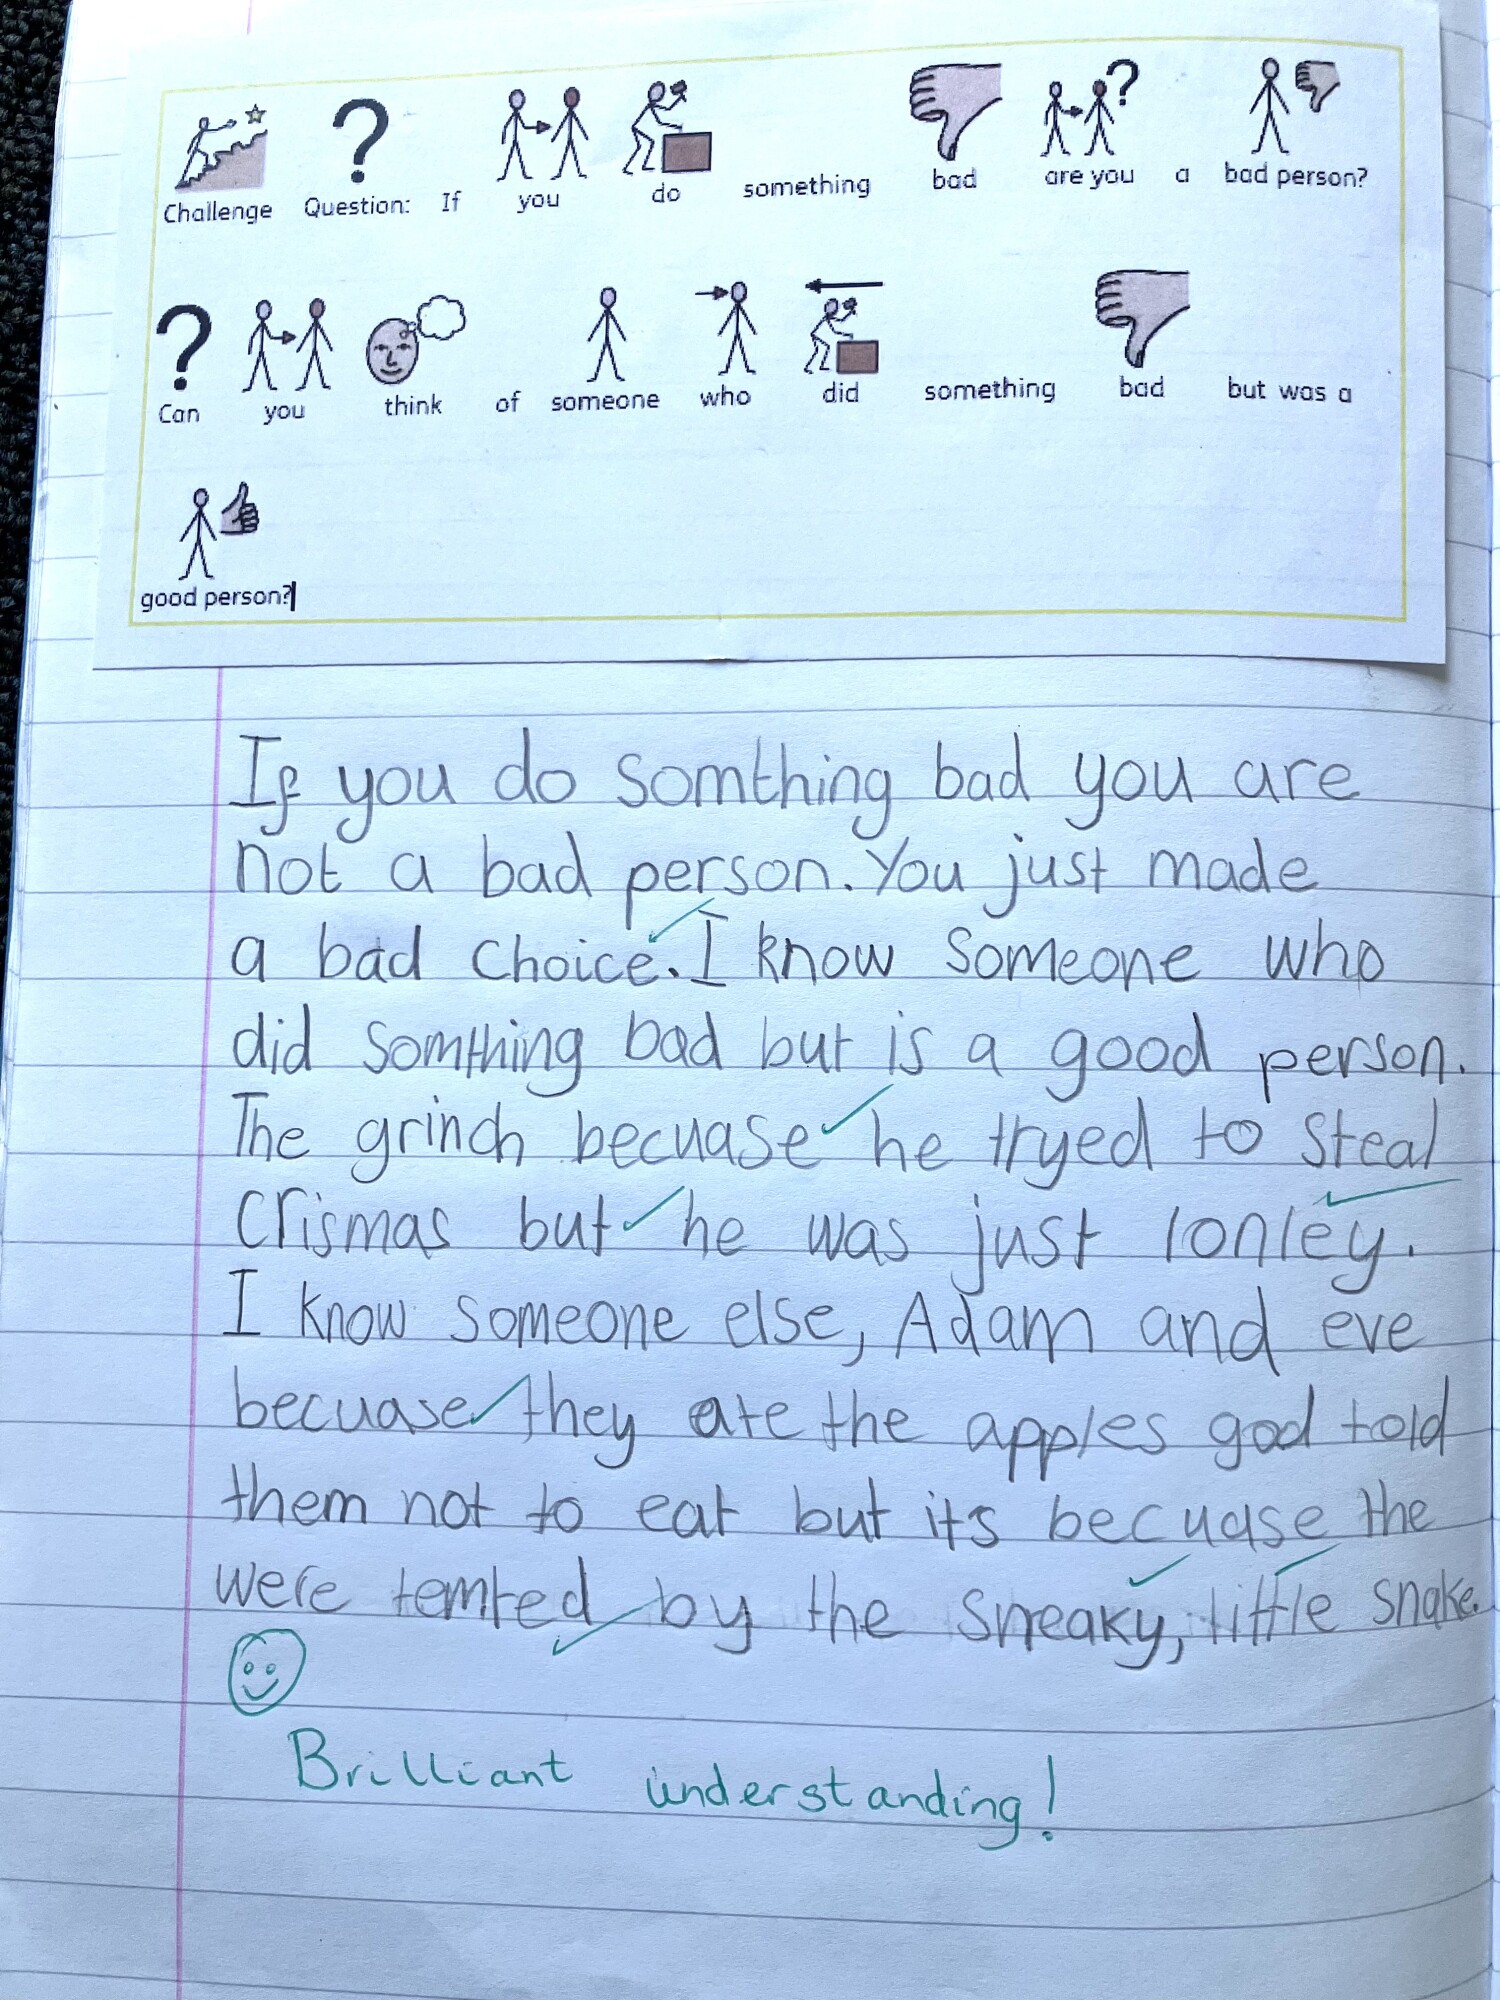 Challenge Question: If you do something bad are you a bad person?
Can you think of someone who did something bad but was a
good person?
If you do somthing bad you are
not a bad person. You just made
a bad choice. I know someone who
did somthing bad but is a good person.
The grinch becuase he tryed to steal
Crismas but he was just lonley.
I know someone else, Adam and eve
becuase they ate the apples god told
them not to eat but its becuase the
were temted by the sneaky, little snake.
Brilliant understanding!